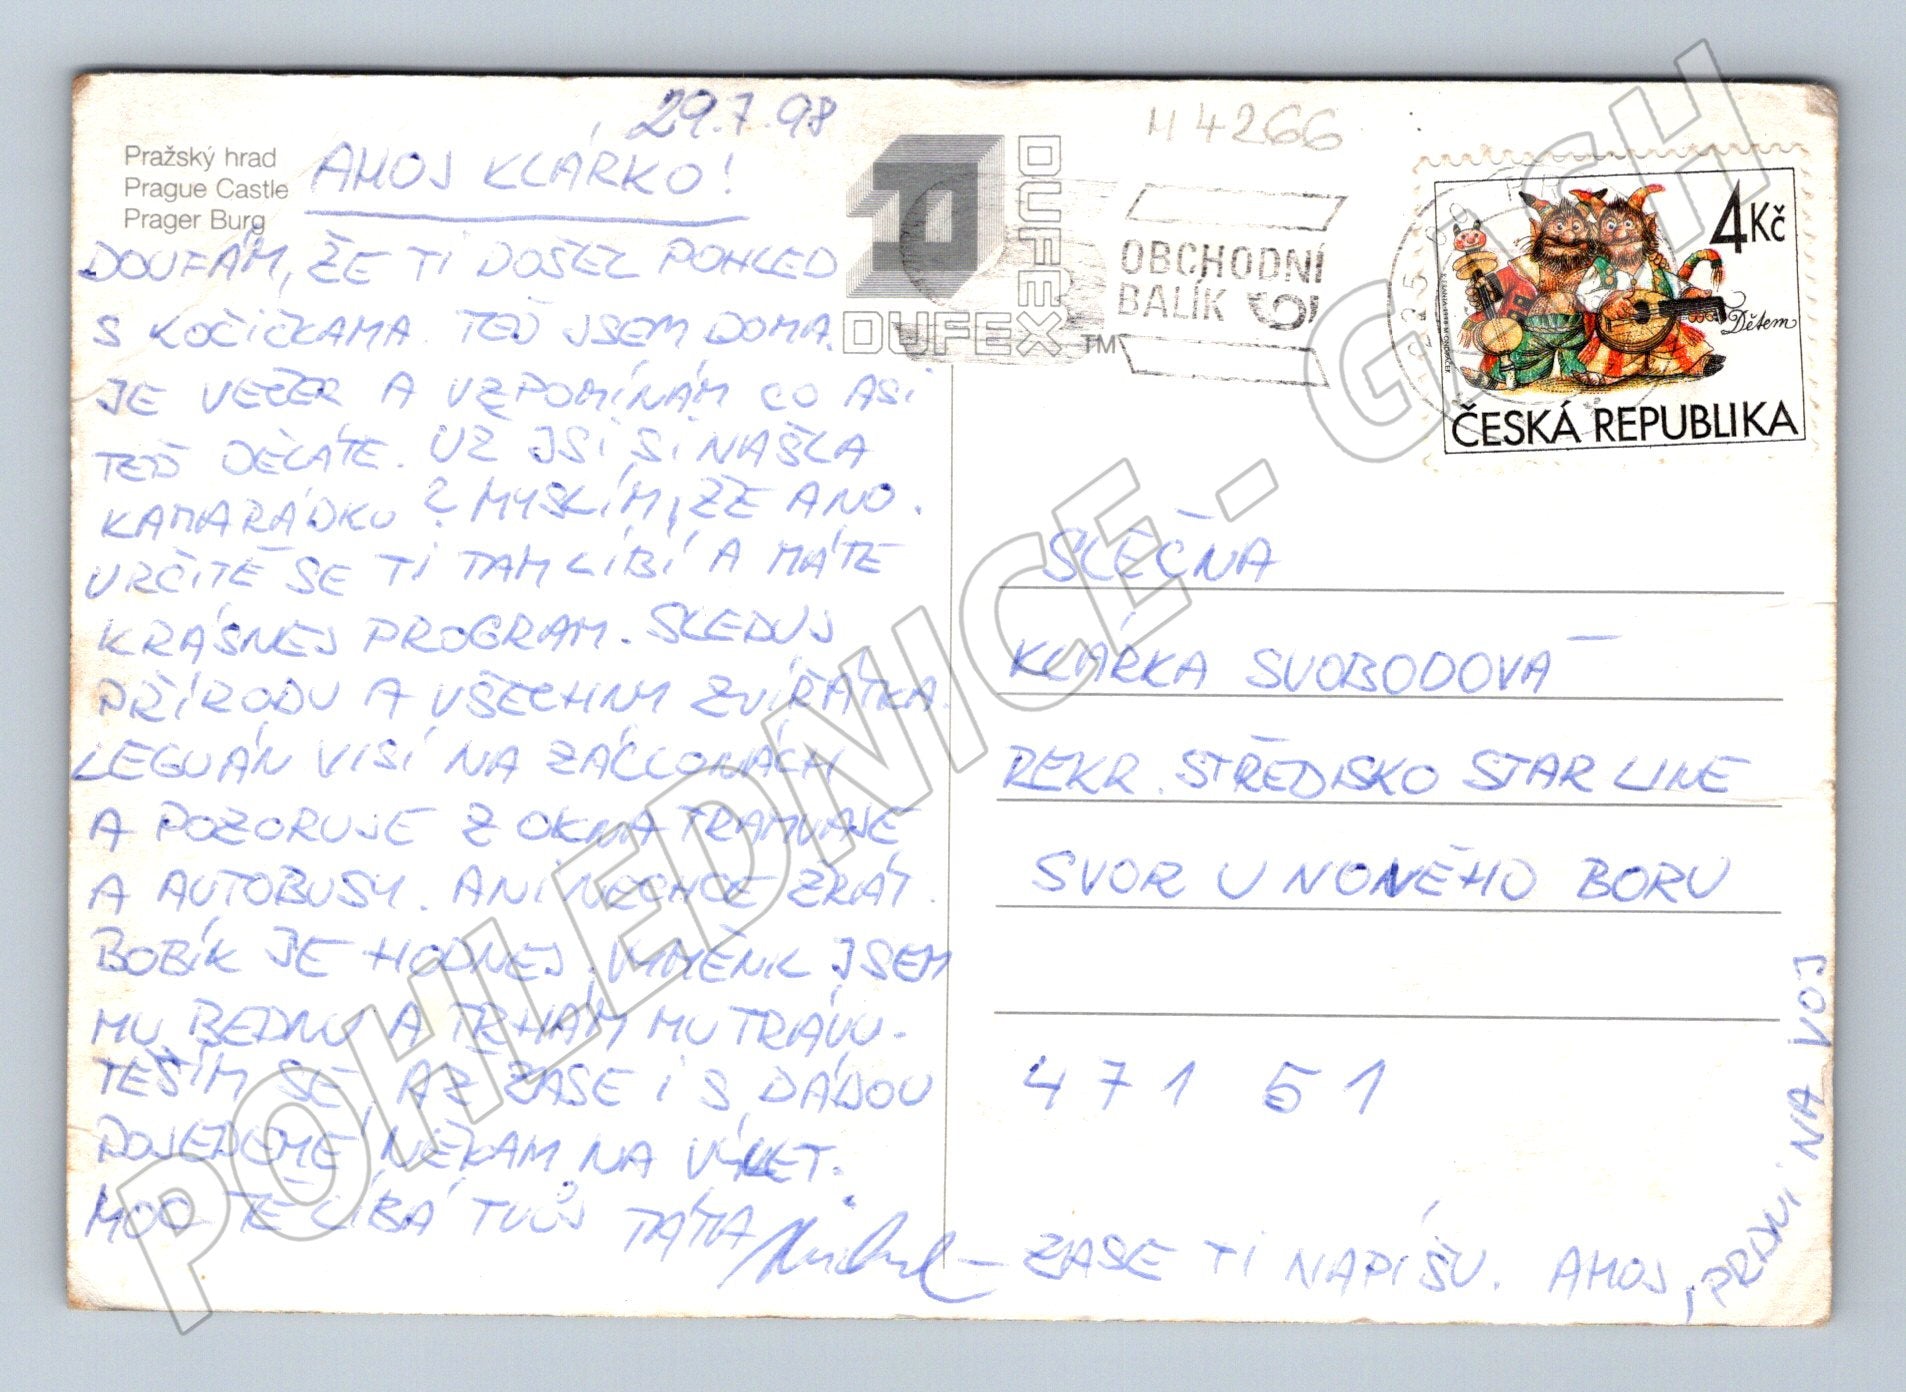 29.7.98
M 4266
Pražský hrad
Prague Castle
Prager Burg
AHOJ KLÁRKO!
DOUFÁM, ŽE TI DOŠEL POHLED
S KOČIČKAMA. TEĎ JSEM DOMA.
JE VEČER A VZPOMÍNÁM CO ASI
TEĎ DĚLÁTE. UŽ JSI SI NAŠLA
KAMARÁDKU? MYSLÍM, ŽE ANO.
URČITĚ SE TI TAM LÍBÍ A MÁTE
KRÁSNEJ PROGRAM. SLEDUJ
PŘÍRODU A VŠECHNY ZVÍŘÁTKA.
LEGUÁN VISÍ NA ZÁCLONÁCH
A POZORUJE Z OKNA TRAMVAJE
A AUTOBUSY. ANI NECHCE ŽRÁT.
BOBÍK JE HODNEJ. VYMĚNIL JSEM
MU BEDNU A TRHÁM MU TRÁVU.
TĚŠÍM SE, AŽ ZASE I S DÁDOU
POJEDEME NĚKAM NA VÝLET.
MOC TĚ LÍBÁ TVŮJ TÁTA
– ZASE TI NAPÍŠU. AHOJ, PRDNI NA VOJ
DUFEX
DUFEX™
OBCHODNÍ
BALÍK
4Kč
Dětem
ČESKÁ REPUBLIKA
SLEČNA
KLÁRKA SVOBODOVÁ
REKR. STŘEDISKO STAR LINE
SVOR U NOVÉHO BORU
471 51
POHLEDNICE - GM.SH